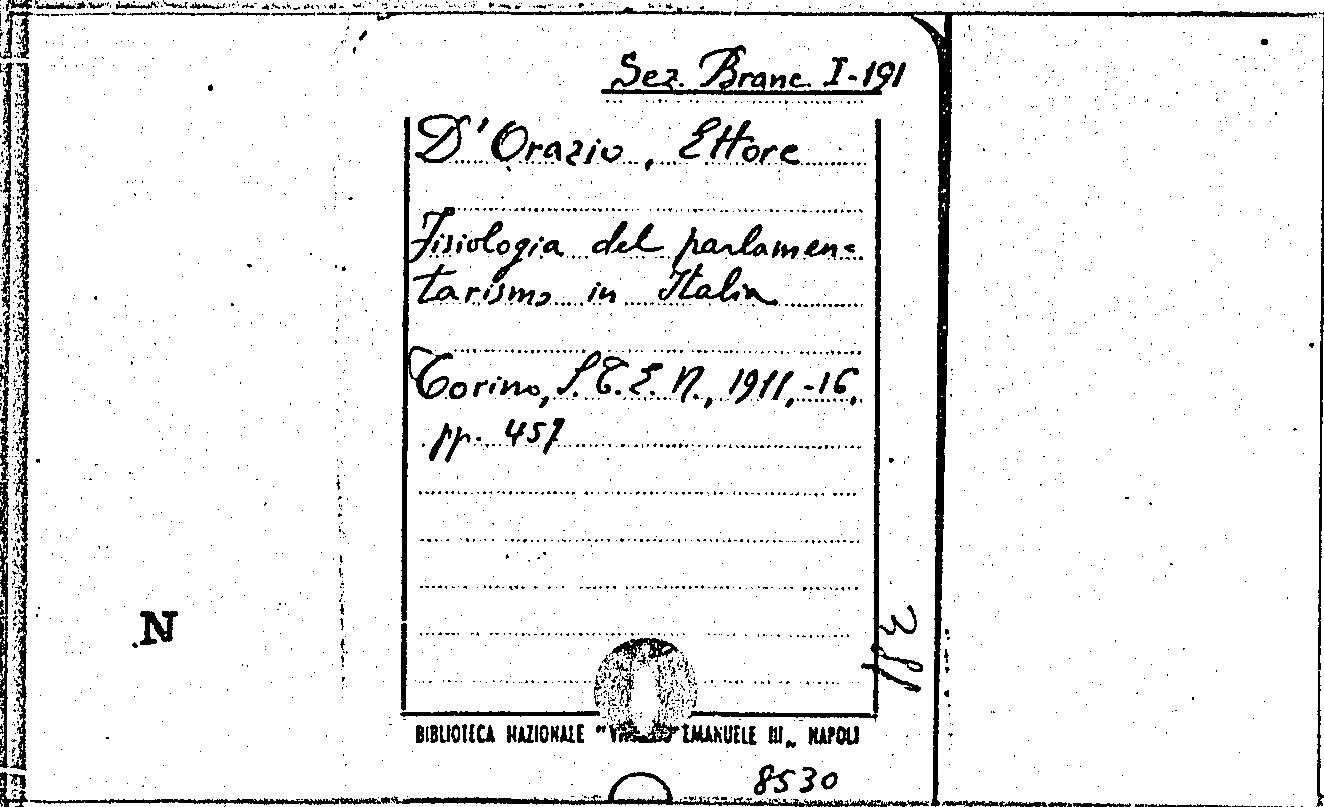 Sez. Branc. I-191
D'Orazio, Ettore
Fisiologia del parlamen=
tarismo in Italia
Torino, S.T.E.N., 1911, -16,
pp. 457
N
BIBLIOTECA NAZIONALE " EMANUELE III„ NAPOLI
8530